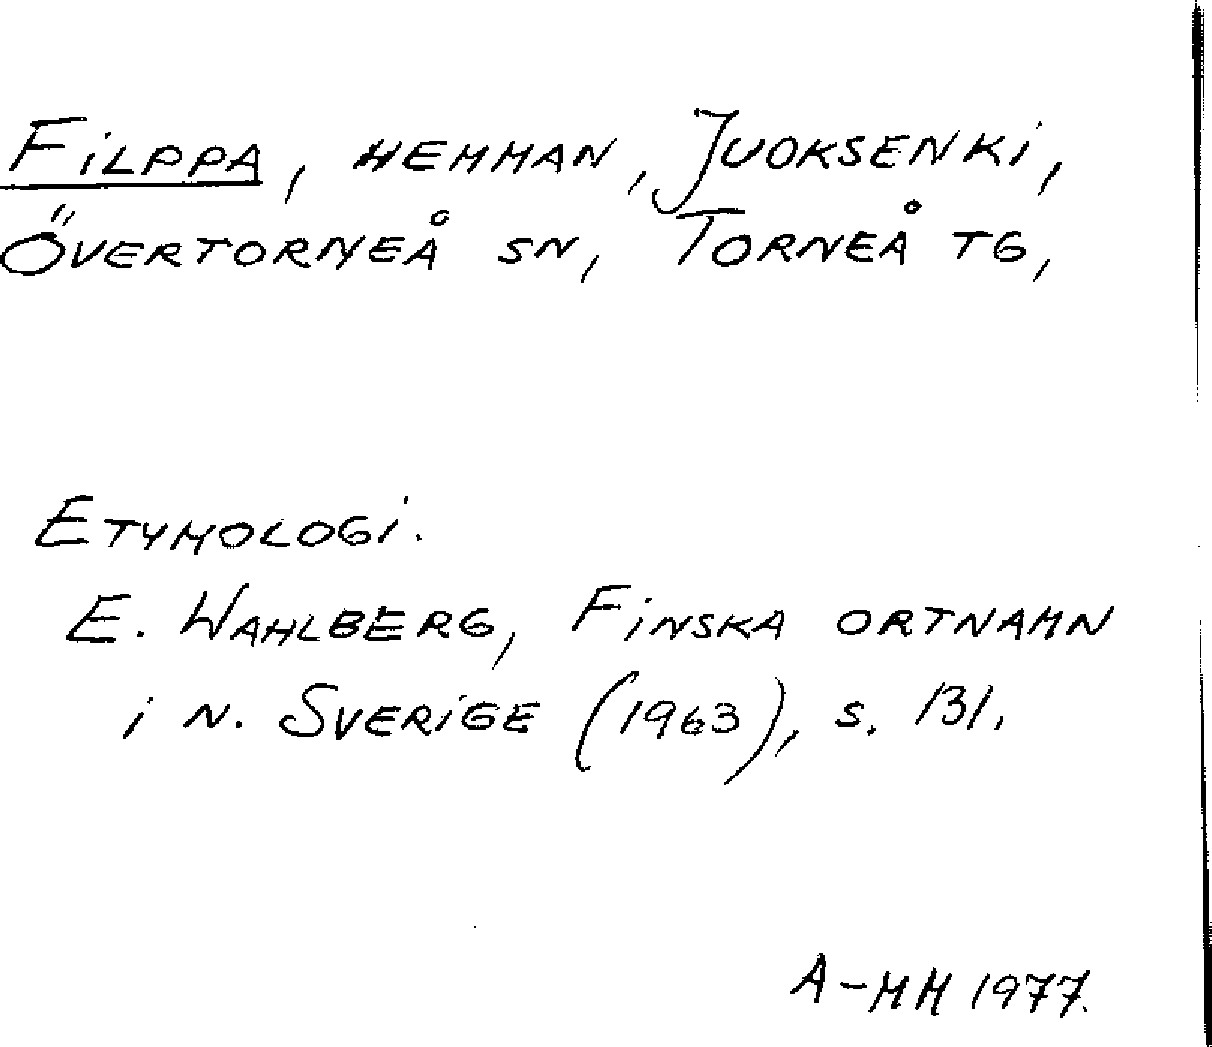 Filppa, hemman, Juoksenki,
Övertorneå sn, Torneå tg,
Etymologi.
E. Wahlberg, Finska ortnamn
i n. Sverige (1963), s. 131.
A-MH 1977.